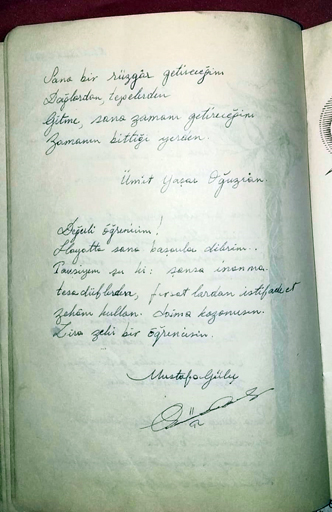 Sana bir rüzgâr getireceğim
Dağlardan, tepelerden
Gitme, sana zamanı getireceğim
Zamanın bittiği yerden.
Ümit Yaşar Oğuzcan.
Değerli öğrencim!
Hayatta sana başarılar dilerim..
Tavsiyem şu ki: şansa inanma.
tesadüflerden, fırsatlardan istifade et
zekânı kullan. Daima kazanırsın.
Zira zeki bir öğrencisin.
Mustafa